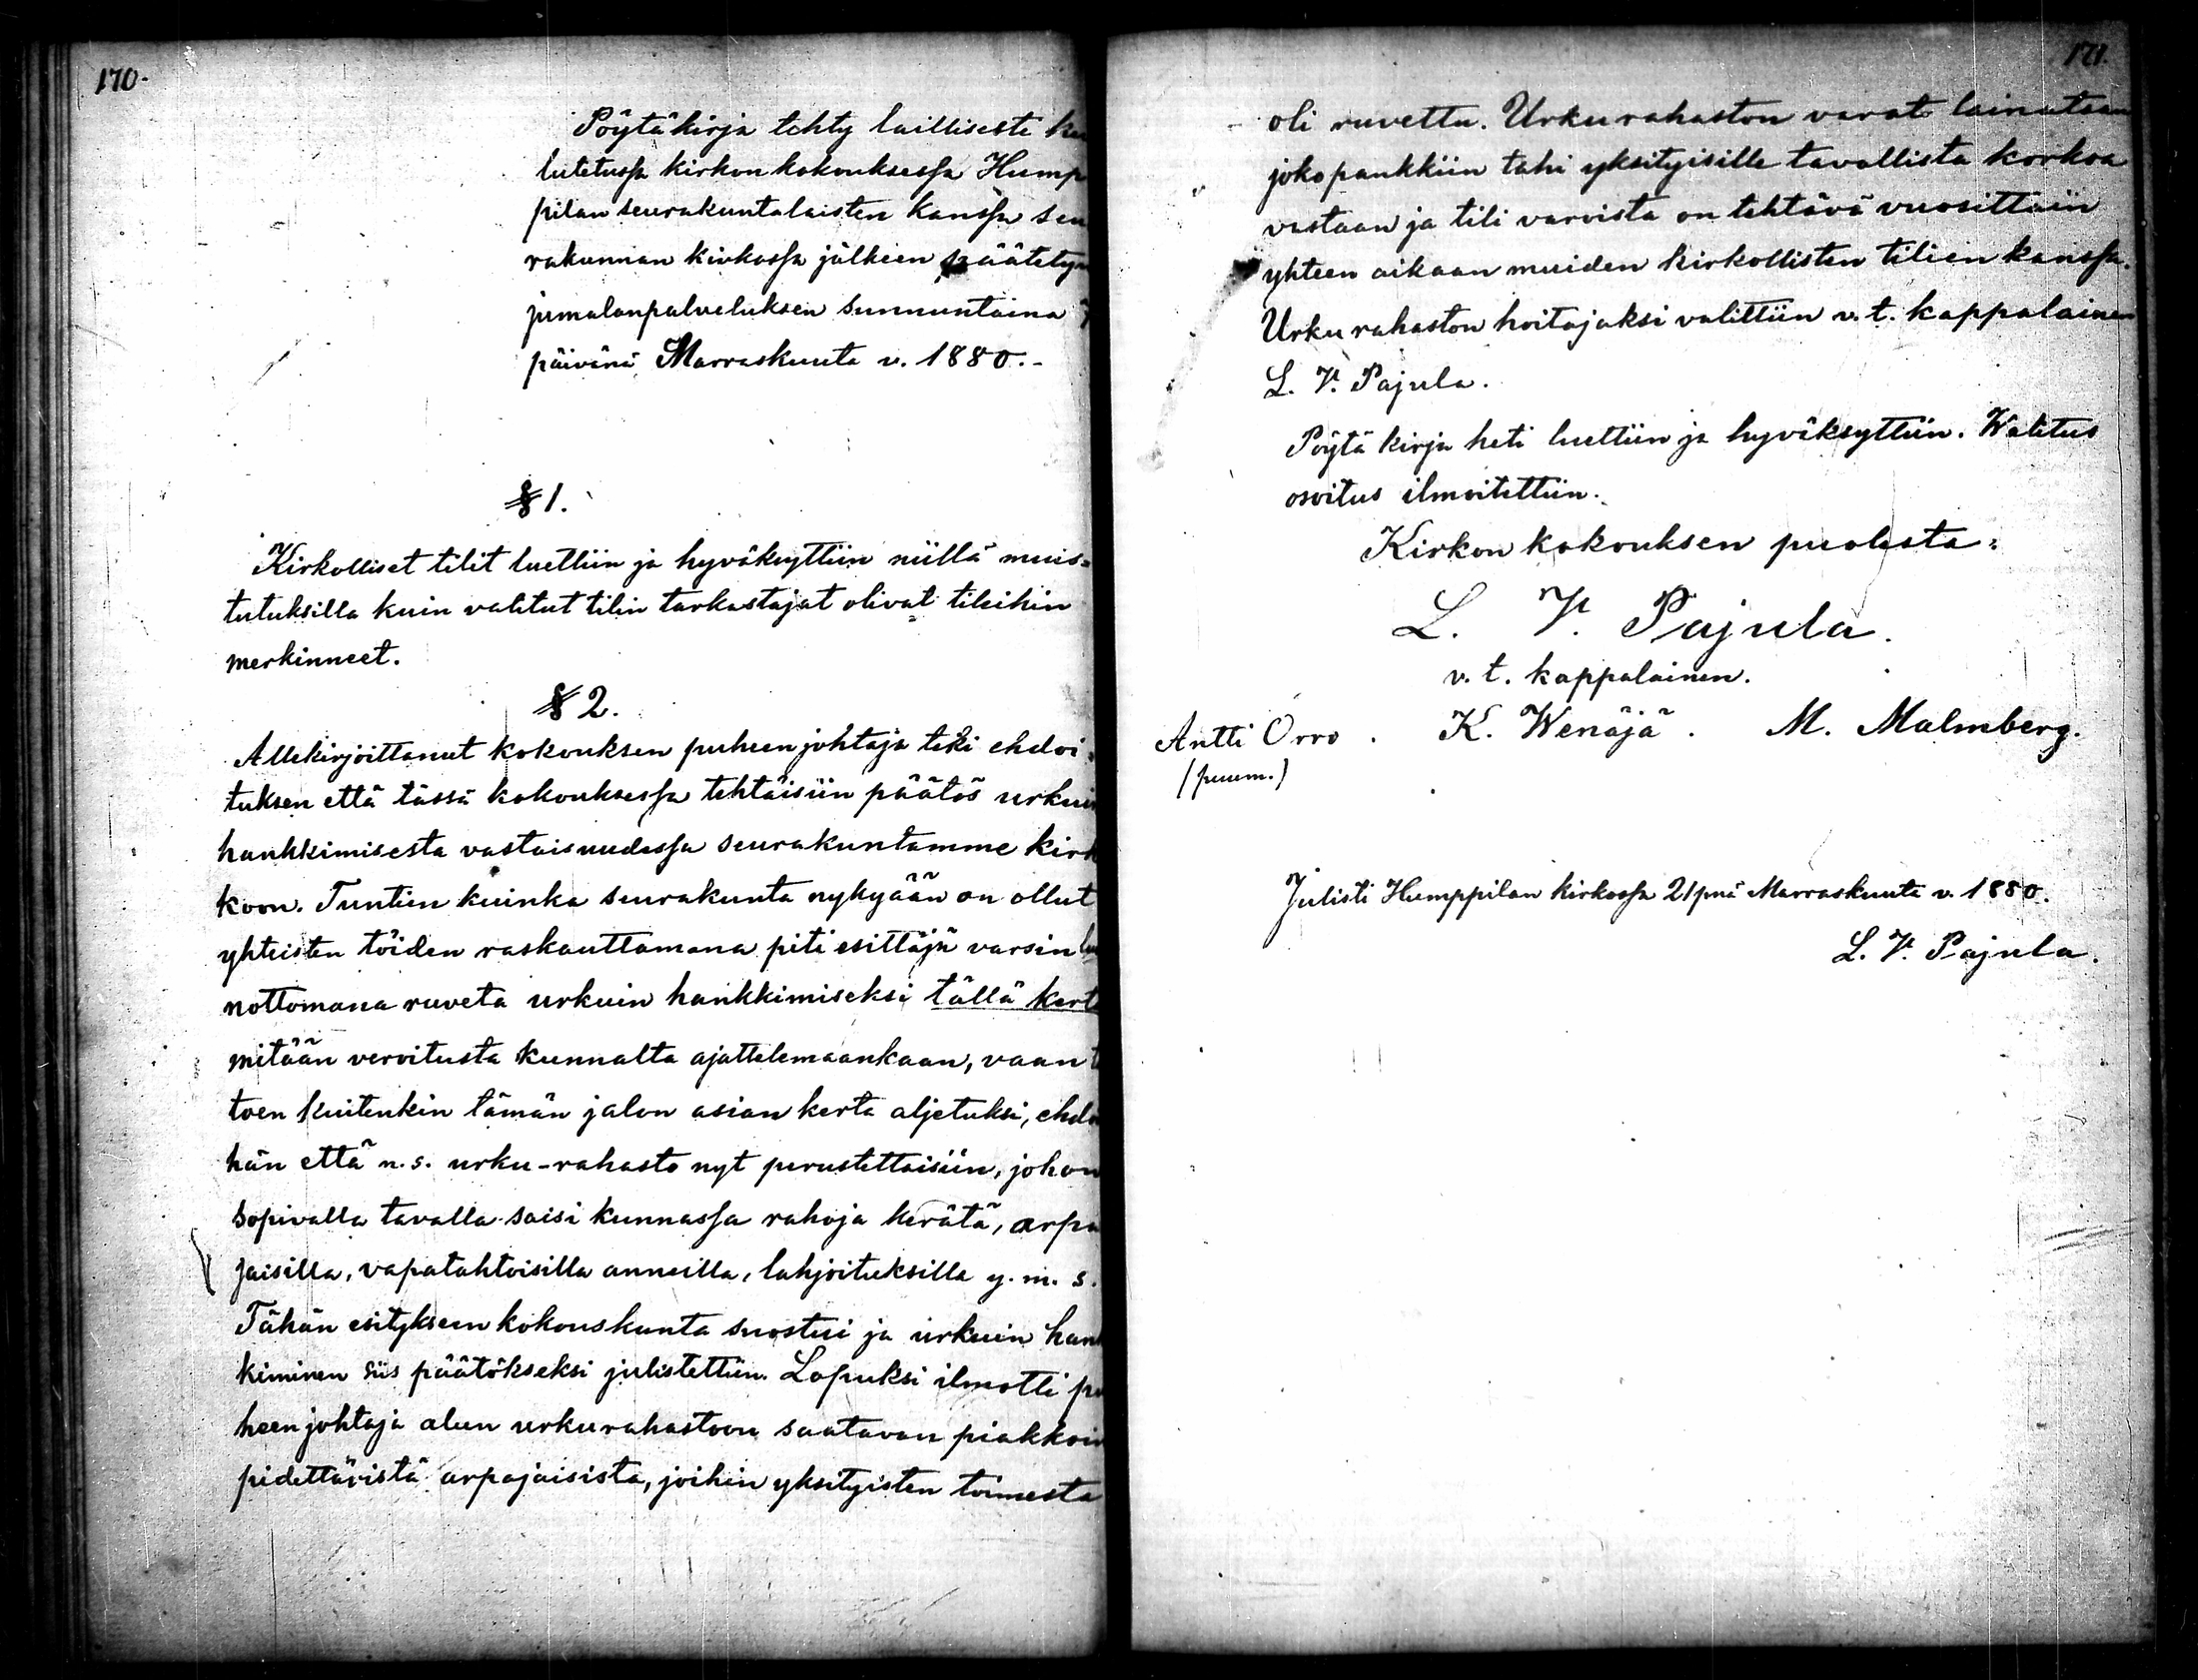 170.
Pöytäkirja tehty laillisesti ku
lutetussa kirkonkokouksessa Hump
pilan seurakuntalaisten kanssa seu
rakunnan kirkossa jälkeen päätetyn
jumalanpalveluksen sunnuntaina 7
päivänä Marraskuuta v. 1880.-
§ 1.
Kirkolliset tilit luettiin ja hyväksyttiin niillä muis=
tutuksilla kuin valitut tilin tarkastajat olivat tileihin
merkinneet.
§ 2.
Allekirjoittanut kokouksen puheenjohtaja teki ehdoi=
tuksen että tässä kokouksessa tehtäisiin päätös urkuin
hankkimisesta vastaisuudessa seurakuntamme kirk
koon. Tuntien kuinka seurakunta nykyään on ollut
yhteisten töiden raskauttamana piti esittäjä varsin luo
nottomana ruveta urkuin hankkimiseksi tällä kert
mitään veroitusta kunnalta ajattelemaankaan, vaan t
toen kuitenkin tämän jalon asian kerta aljetuksi, ehdo
hän että n.s. urku-rahasto nyt perustettaisiin, johon
sopivalla tavalla saisi kunnassa rahoja kerätä, arpa
jaisilla, vapatahtoisilla anneilla, lahjoituksilla y. m. s.
Tähän esitykseen kokouskunta suostui ja urkuin hank
kiminen siis päätökseksi julistettiin. Lopuksi ilmotti pu
heenjohtaja alun urkurahastoon saatavan piakkoin
pidettävistä arpajaisista, joihin yksityisten toimesta
171.
oli ruvettu. Urkurahaston varat lainataan
joko pankkiin tahi yksityisille tavallista korkoa
vastaan ja tili varoista on tehtävä vuosittain
yhteen aikaan muiden kirkollisten tilien kanssa.
Urkurahaston hoitajaksi valittiin v. t. kappalainen
L. V. Pajula.
Pöytäkirja heti luettiin ja hyväksyttiin. Walitus
osoitus ilmoitettiin.
Kirkon kokouksen puolesta:
L. V. Pajula.
v. t. kappalainen.
Antti Orro. K. Wenäjä. M. Malmberg.
(puum.)
Julisti Humppilan kirkossa 21 pnä Marraskuuta v. 1880.
L. V. Pajula.